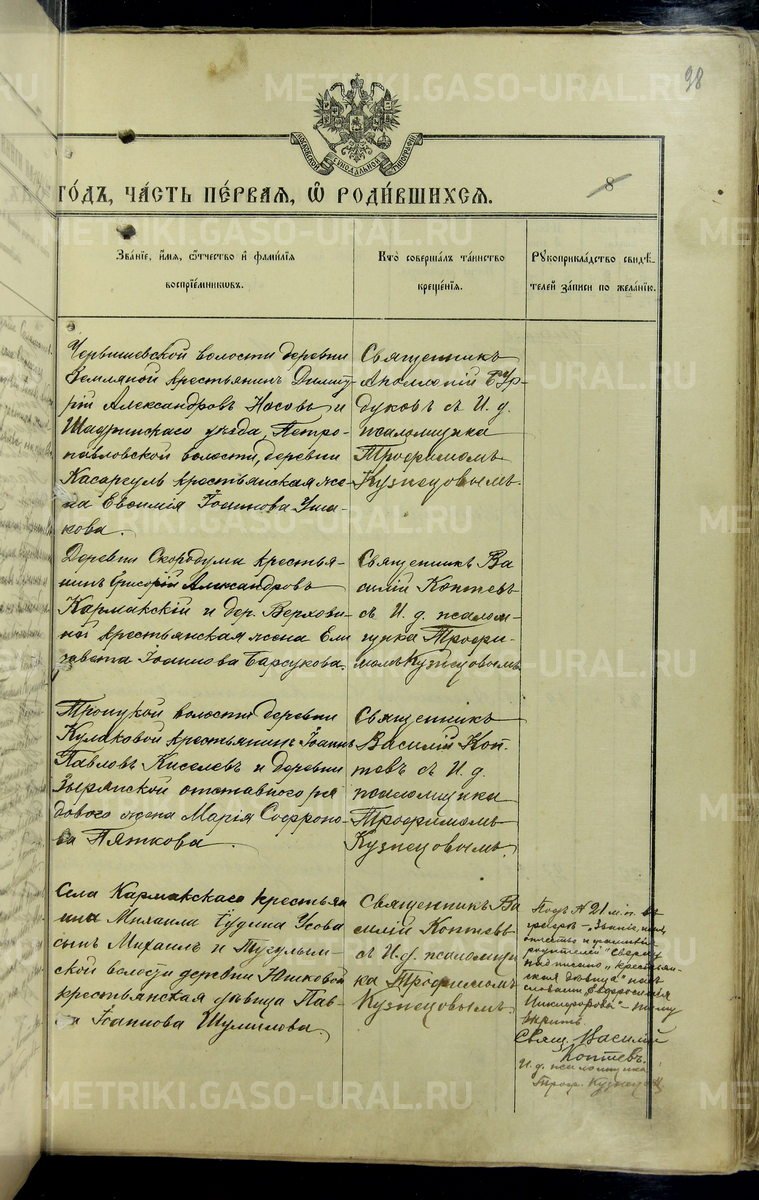 98
МОСКОВСКОЙ СѴНОДАЛЬНОЙ ТИПОГРАФІИ
ГО́ДЪ, ЧА́СТЬ ПЕ́РВАЯ, Ѡ҆ РОДИ́ВШИХСЯ.
8
Зва́нїе, и҆́мя, ѻ҆́тчество и҆ фами́лїя
воспрїе́мникωвъ.
Кто̀ соверша́лъ та́инство
креще́нїя.
Рꙋкоприкла́дство свидѣ́-
телей за́писи по жела́нїю.
Червишевской волости деревни
Земляной крестьянинъ Димит
рій Александровъ Насовъ и
Шадринскаго уѣзда, Петро-
павловской волости, деревни
Касаргуль крестьянская же
на Евѳимія Іоаннова Уша
кова.
Священникъ
Аполлоній Бур-
дуковъ съ И. д.
псаломщика
Трофимомъ
Кузнецовымъ.
Деревни Скородума крестья-
нинъ Григорій Александровъ
Кармакскій и дер. Верхови-
ной крестьянская жена Ели
завета Іоаннова Барсукова.
Священникъ Ва
силій Коптевъ
съ И. д. псалом-
щика Трофи-
момъ Кузнецовымъ
Троицкой волости деревни
Кулаковой крестьянинъ Іоаннъ
Павловъ Киселевъ и деревни
Зырянской отставного ря
дового жена Марія Софроно-
ва Пяткова.
Священникъ
Василій Коп-
тевъ съ И. д.
псаломщика
Трофимомъ
Кузнецовымъ.
Села Кармакскаго крестьяни
на Михаила Іудина Усова
сынъ Михаилъ и Тугулым-
ской волости деревни Юшковой
крестьянская дѣвица Пав-
ла Іоаннова Шумилова.
Священникъ Ва
силій Коптевъ
съ И. д. псаломщи
ка Трофимомъ
Кузнецовымъ.
Подъ № 21 м. п. въ
графѣ „Званіе, имя,
отчество и фамилія
родителей" сверху
надписано „крестьян-
ская дѣвица" надъ
словами Евфросинія
Никифорова" – тому
вѣрить
Свящ. Василій
Коптевъ.
И. д. псаломщика
Троф. Кузнецовъ
METRIKI.GASO-URAL.RU
METRIKI.GASO-URAL.RU
METRIKI.GASO-URAL.RU
METRIKI.GASO-URAL.RU
METRIKI.GASO-URAL.RU
METRIKI.GASO-URAL.RU
METRIKI.GASO-URAL.RU
METRIKI.GASO-URAL.RU